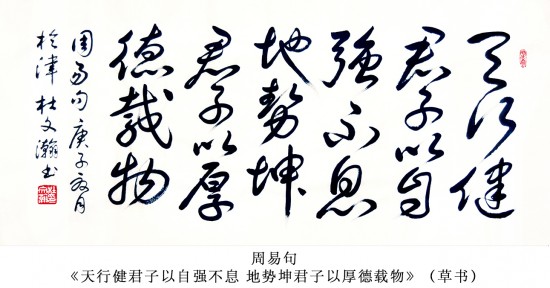 天行健
君子以自
強不息
地勢坤
君子以厚
德載物
周易句 庚子夏月
於津 杜文瀚书
周易句
《天行健君子以自强不息 地势坤君子以厚德载物》（草书）